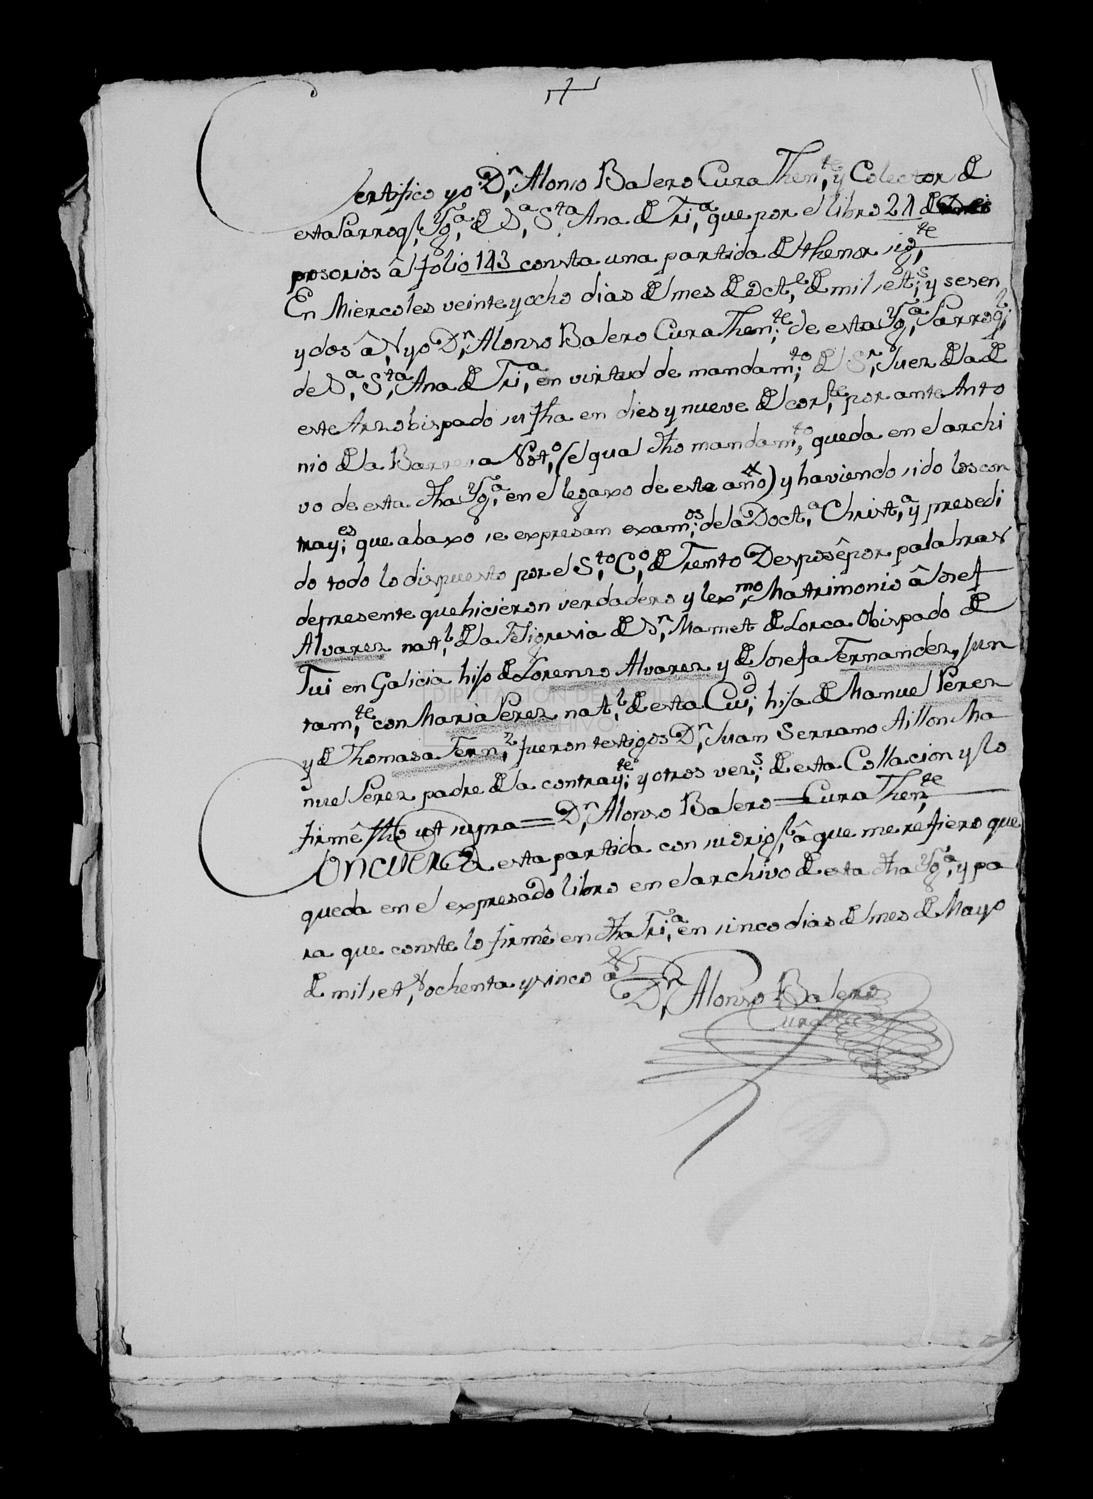 Certifico yo D.n Alonso Balero Cura Then.te y Colector de
esta Parroq.l Yg.a de S.a S.ta Ana de Tri.a que por el libro 21 de Des
posorios â folio 143 consta una partida del thenor sig.te
En Miercoles veinte y ocho dias del mes de Oct.e de mil set.s y sesen
y dos â.s yo D.n Alonso Balero Cura Then.te de esta Yg.a Parroq.l
de S.a S.ta Ana de Tri.a en virtud de mandam.to del S.r Juez de la de
este Arzobispado su fha en dies y nueve del cor.te por ante Anto
nio de la Barrera Not.o (el qual dho mandam.to queda en el archi
vo de esta dha Yg.a en el legaxo de este año) y haviendo sido los con
tray.es que abaxo se expresan exam.os de la Doct.a Christ.a y presedi
do todo lo dispuesto por el S.to C.o de Trento Desposê por palabras
de presente que hicieron verdadero y lex.mo Matrimonio â Josef
Alvarez nat.l de la Feligresia de S.n Mamet de Lorca Obispado de
Tui en Galicia hijo de Lorenzo Alvarez y de Josefa Fernandez, jun
tam.te con Maria Perez nat.l de esta Ciu.d hija de Manuel Perez
y de Thomasa Fern.z fueron testigos D.n Juan Serrano Aillon Ma
nuel Perez padre de la contray.te y otros vez.s de esta Collacion y lo
firmê fho ut supra = D.n Alonso Balero = Cura Then.te
Concuerda esta partida con su orig.l â que me refiero que
queda en el expresado libro en el archivo de esta dha Yg.a y pa
ra que conste lo firmê en dha Tri.a en sinco dias del mes de Mayo
de mil set.s ochenta y sinco a.s
D.n Alonso Balero
Cura
DIPUTACIÓN DE SEVILLA
ARCHIVO